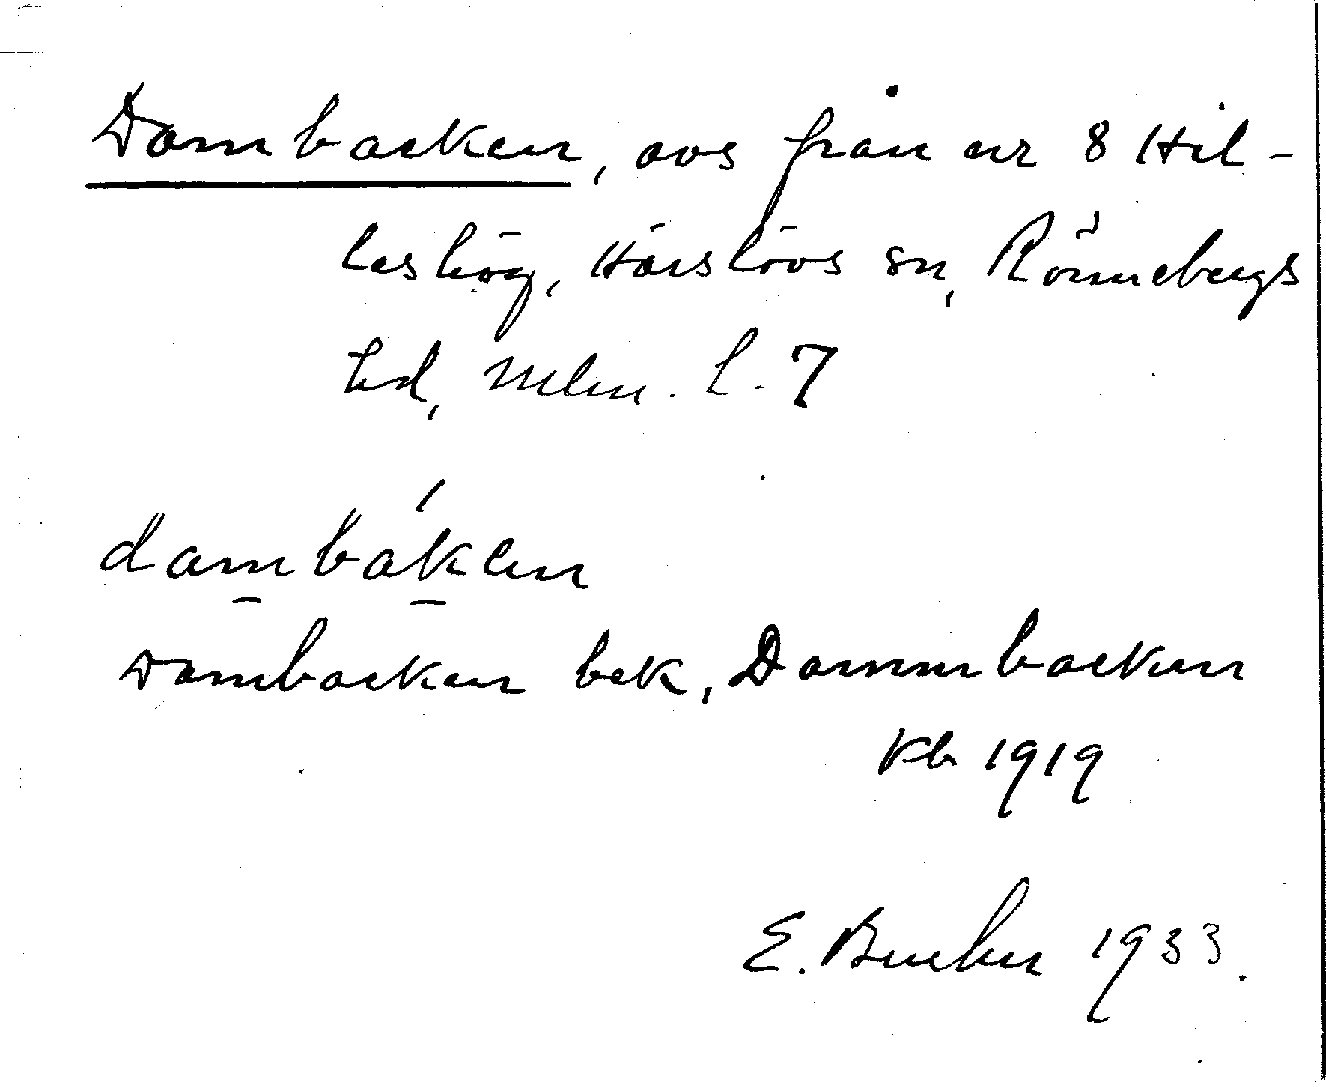 Dambacken, avs från nr 8 Hil-
leshög, Härslövs sn, Rönnebergs
hd, Mlm. l. 7
dambáken
Dambacken bek, Dammbacken
Kb 1919
E. 1933.